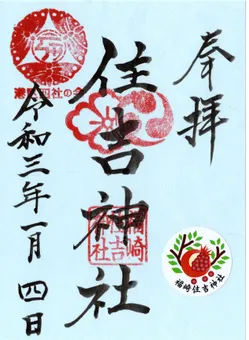 奉拝
住吉神社
令和三年一月四日
港區四社の会
福崎住吉神社
福崎住吉神社